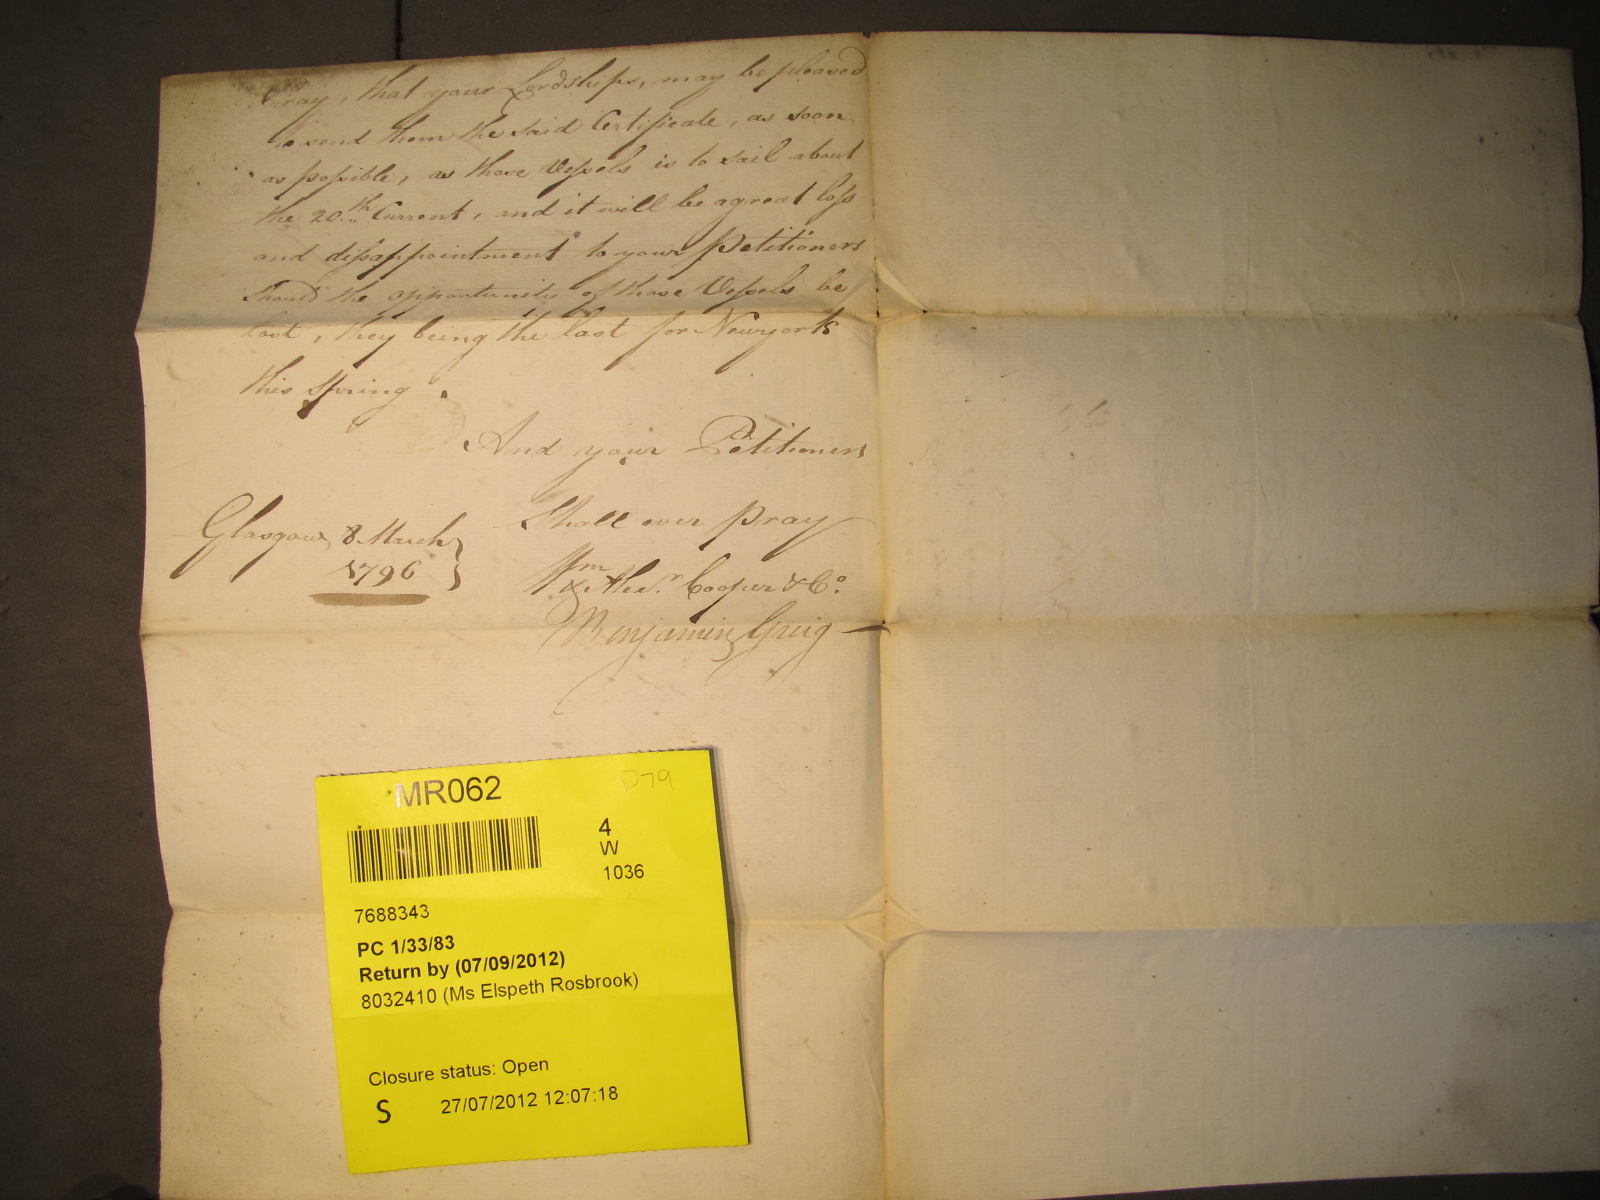 Pray, that your Lordships, may be pleased
to send them the said Certificate, as soon
as possible, as those Vessels is to sail about
the 20.th Current, and it will be a great loss
and dissappointment to your Petitioners
should the opportunity of those Vessels be
lost, they being the last for Newyork
this Spring.
And your Petitioners
Shall ever pray
Glasgow 8 March
1796
Wm & Alexr. Cooper & Co.
Benjamin Greig
MR062
D79
4
W
1036
7688343
PC 1/33/83
Return by (07/09/2012)
8032410 (Ms Elspeth Rosbrook)
Closure status: Open
S 27/07/2012 12:07:18